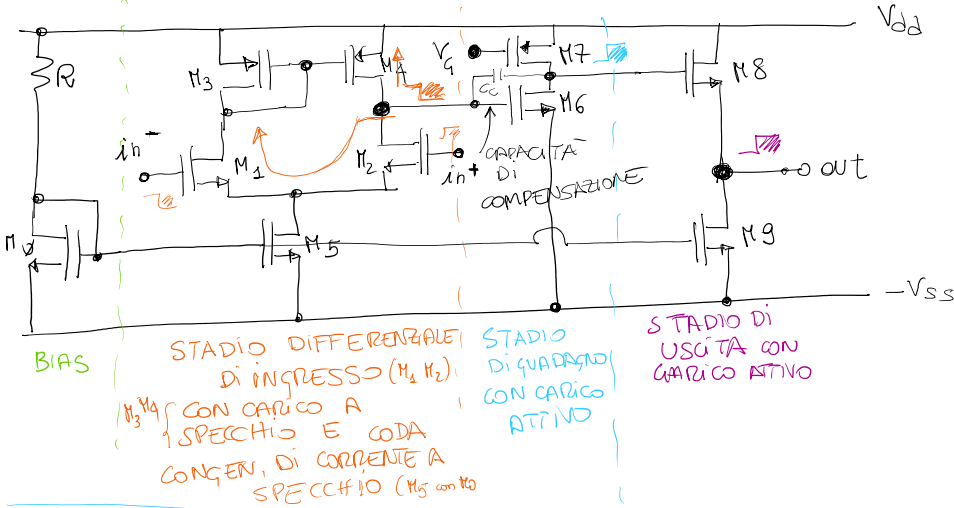 Vdd
R
M3
M4
VG
M7
M8
Cc
M6
in-
M1
M2
in+
CAPACITÀ
DI
COMPENSAZIONE
OUT
M0
M5
M9
-Vss
BIAS
STADIO DIFFERENZIALE
DI INGRESSO (M1 M2)
M3 M4 { CON CARICO A
SPECCHIO E CODA
CON GEN. DI CORRENTE A
SPECCHIO (M5 con M0
STADIO
DI GUADAGNO
CON CARICO
ATTIVO
STADIO DI
USCITA CON
CARICO ATTIVO